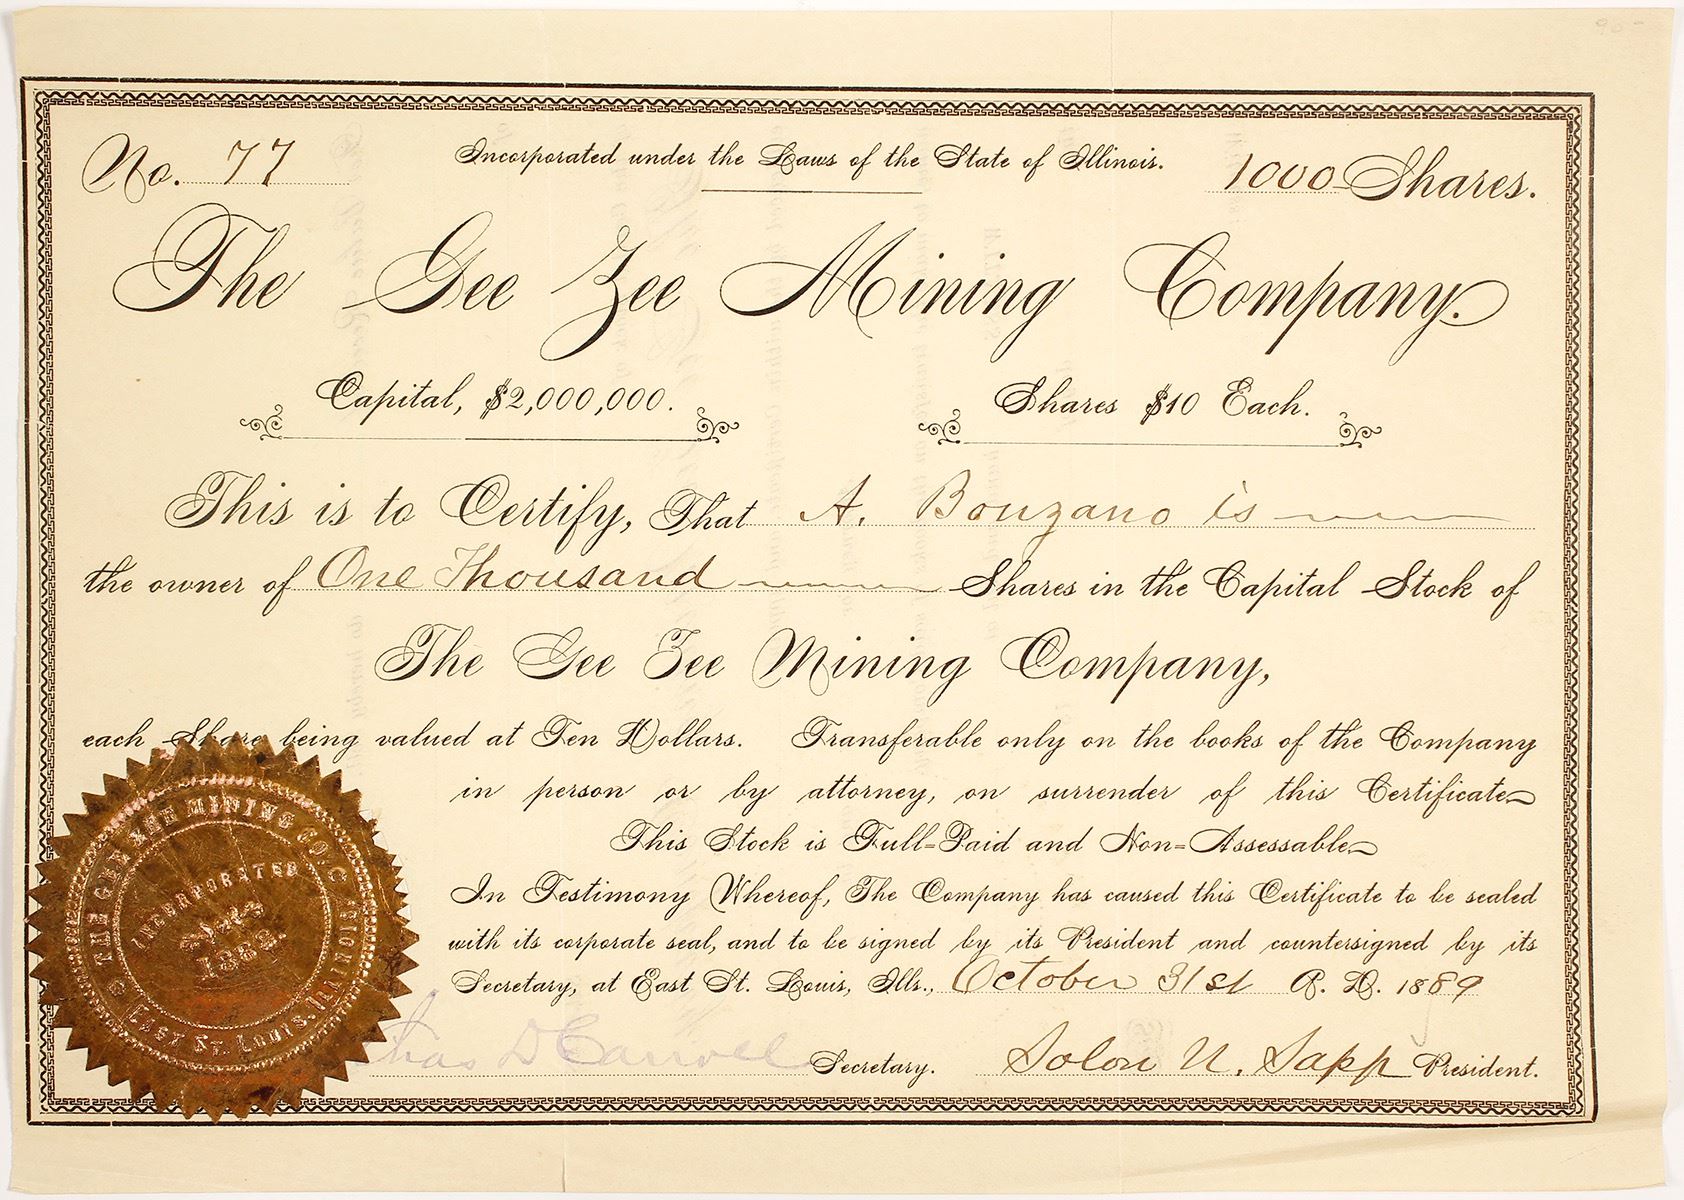 No. 77
Incorporated under the Laws of the State of Illinois.
1000 Shares.
The Gee Zee Mining Company.
Capital, $2,000,000.
Shares $10 Each.
This is to Certify, That A. Bonzano is
the owner of One Thousand Shares in the Capital Stock of
The Gee Zee Mining Company,
each Share being valued at Ten Dollars. Transferable only on the books of the Company
in person or by attorney, on surrender of this Certificate
This Stock is Full-Paid and Non-Assessable
In Testimony Whereof, The Company has caused this Certificate to be sealed
with its corporate seal, and to be signed by its President and countersigned by its
Secretary, at East St. Louis, Ills., October 31st A. D. 1889
Chas D Carroll Secretary.
Solon N. Sapp President.
THE GEE ZEE MINING CO.
INCORPORATED
EAST ST. LOUIS, ILLINOIS